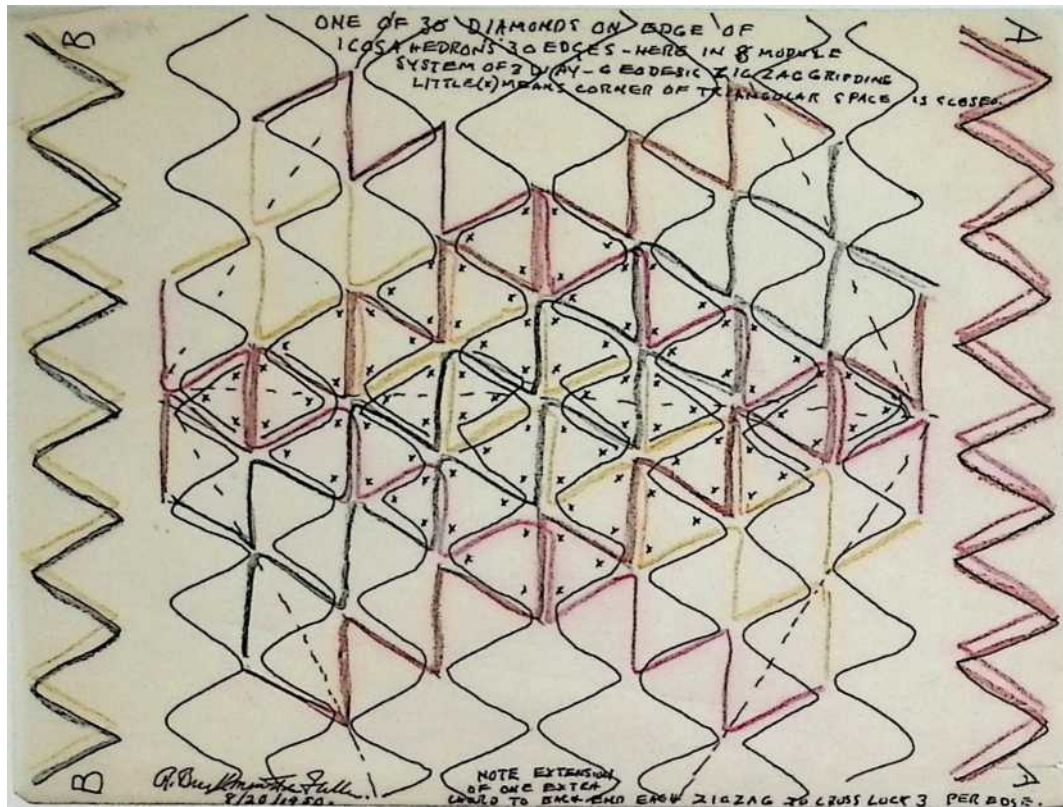 B
A
ONE OF 30 DIAMONDS ON EDGE OF
ICOSAHEDRONS 30 EDGES - HERE IN 8 MODULE
SYSTEM OF 3 WAY - GEODESIC ZIGZAG GRIDDING
LITTLE (x) MEANS CORNER OF TRIANGULAR SPACE IS CLOSED.
B
A
R. Buckminster Fuller.
8/20/1950.
NOTE EXTENSION
OF ONE EXTRA
CHORD TO BACK END EACH ZIGZAG TO CROSS LOCK 3 PER EDGE.